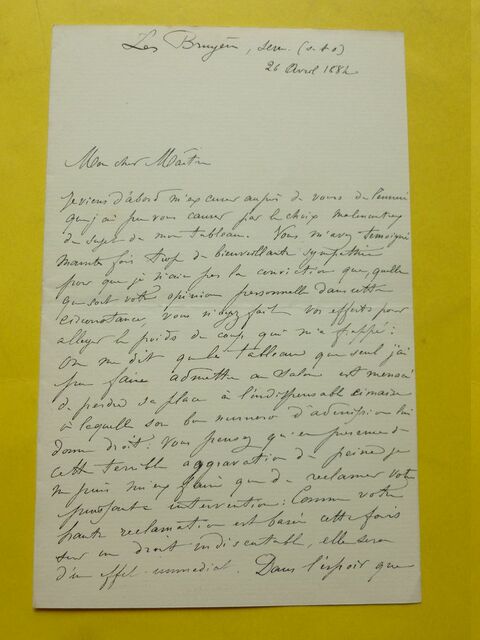 Les Bruyères, Sèvres (S. & O)
26 Avril 1882
Mon cher Maître
Je viens d'abord m'excuser auprès de vous de l'ennui
que j'ai pu vous causer par le choix malencontreux
du sujet de mon tableau. Vous m'avez témoigné
mainte fois trop de bienveillante sympathie
pour que je n'aie pas la conviction que, quelle
que soit votre opinion personnelle dans cette
circonstance, vous n'ayez fait vos efforts pour
alléger le poids du coup, qui m'a frappé :
On me dit que le tableau que seul j'ai
pu faire admettre au Salon est menacé
de perdre sa place à l'indispensable cimaise
à laquelle son bon numéro d'admission lui
donne droit : Vous pensez qu'en présence de
cette terrible aggravation de peine je
ne puis m'expliquer que de réclamer votre
puissante intervention : Comme votre
haute réclamation est basée cette fois
sur un droit indiscutable, elle sera
d'un effet immédiat. Dans l'espoir que